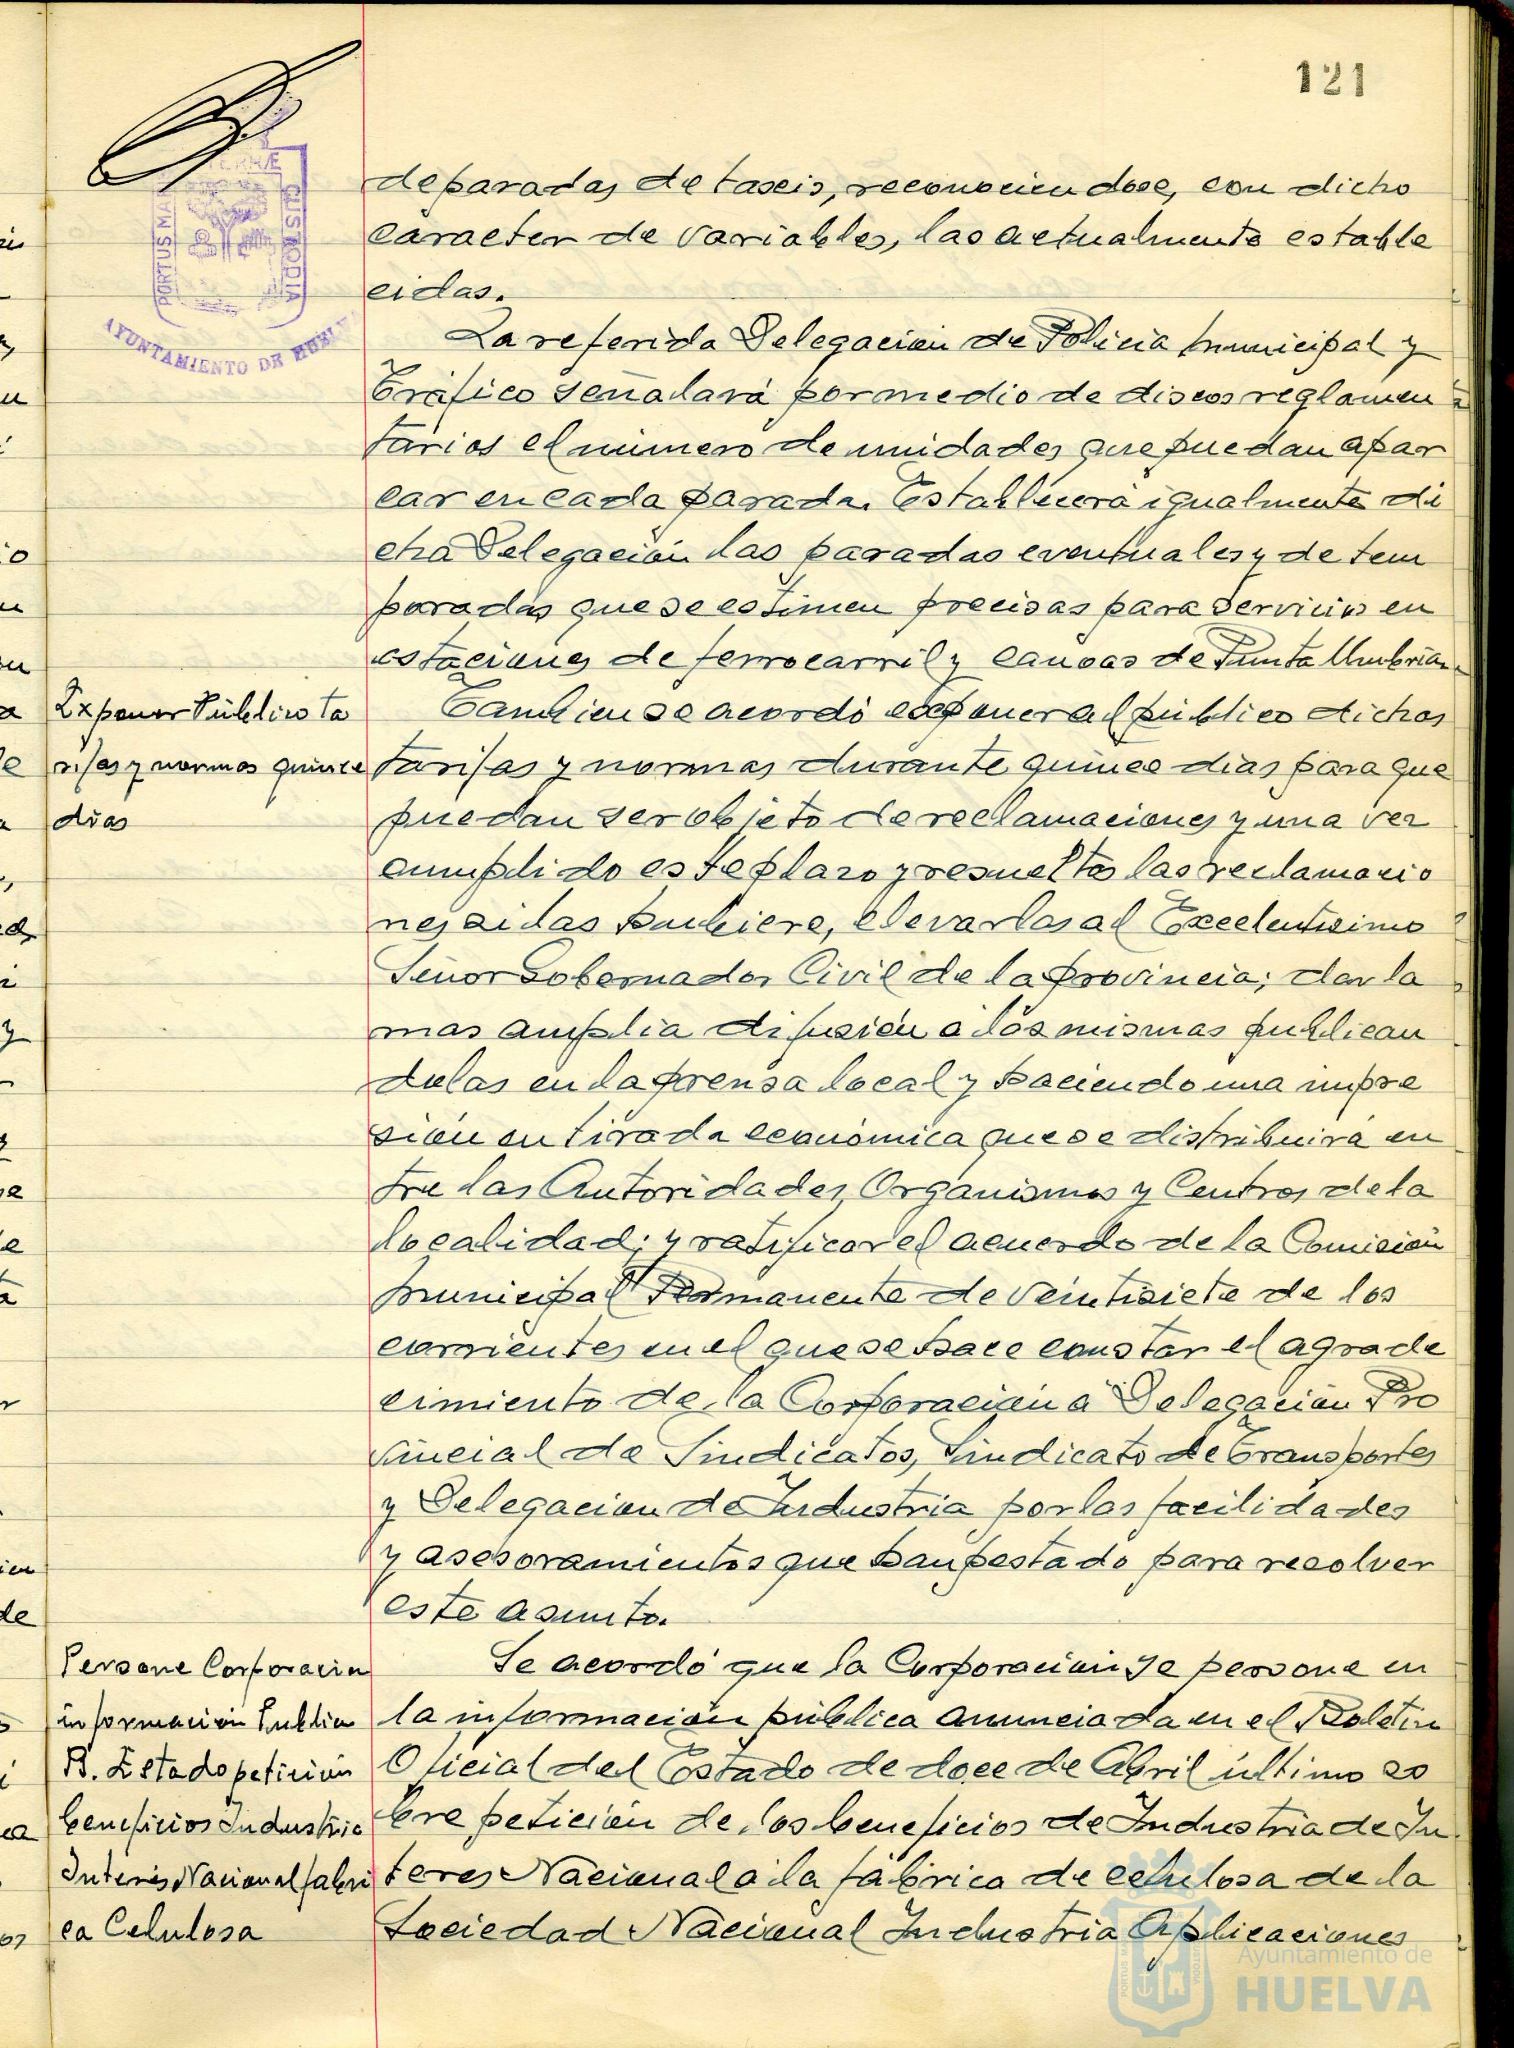 121
PORTUS MARIS ET TERRÆ CUSTODIA
AYUNTAMIENTO DE HUELVA
de paradas de taxis, reconociendose, con dicho
caracter de variables, las actualmente estable
cidas.
La referida Delegación de Policia Municipal y
Tráfico señalará por medio de discos reglamen
tarios el número de unidades que puedan apar
car en cada parada. Establecerá igualmente di
cha Delegación las paradas eventuales y de tem
poradas que se estimen precisas para servicios en
estaciones de ferrocarril y canoas de Punta Umbria.
Exponer Público ta
rifas y normas quince
dias
Tambien se acordó exponer al público dichas
tarifas y normas durante quince dias para que
puedan ser objeto de reclamaciones y una vez
cumplido este plazo y resueltas las reclamacio
nes si las hubiere, elevarlas al Excelentisimo
Señor Gobernador Civil de la provincia; dar la
mas amplia difusión a las mismas publican
dolas en la prensa local y haciendo una impre
sión en tirada económica que se distribuirá en
tre las Autoridades, Organismos y Centros de la
localidad; y ratificar el acuerdo de la Comisión
Municipal Permanente de veintisiete de los
corrientes en el que se hace constar el agrade
cimiento de la Corporación a Delegación Pro
vincial de Sindicatos, Sindicato de Transportes
y Delegación de Industria por las facilidades
y asesoramientos que han pestado para resolver
este asunto.
Persone Corporacin
información Publica
B. Estado petición
beneficios Industria
Interés Nacional fabri
ca Celulosa
Se acordó que la Corporación se persone en
la información pública anunciada en el Boletín
Oficial del Estado de doce de Abril último so
bre petición de los beneficios de Industria de In
teres Nacional a la fábrica de celulosa de la
Sociedad Nacional Industria Aplicaciones
Ayuntamiento de
HUELVA